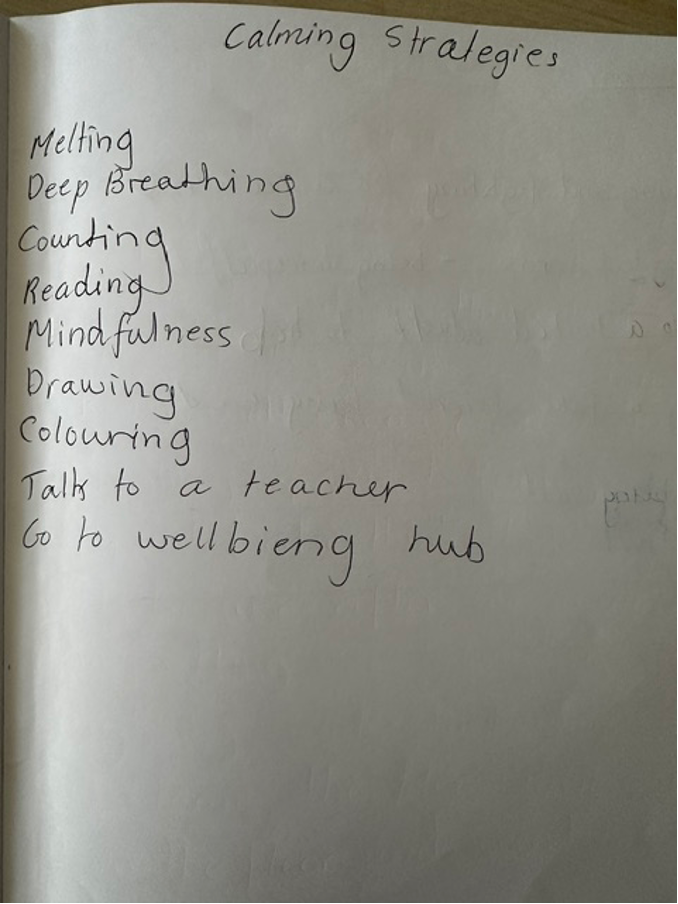 Calming Strategies
Melting
Deep Breathing
Counting
Reading
Mindfulness
Drawing
Colouring
Talk to a teacher
Go to wellbieng hub